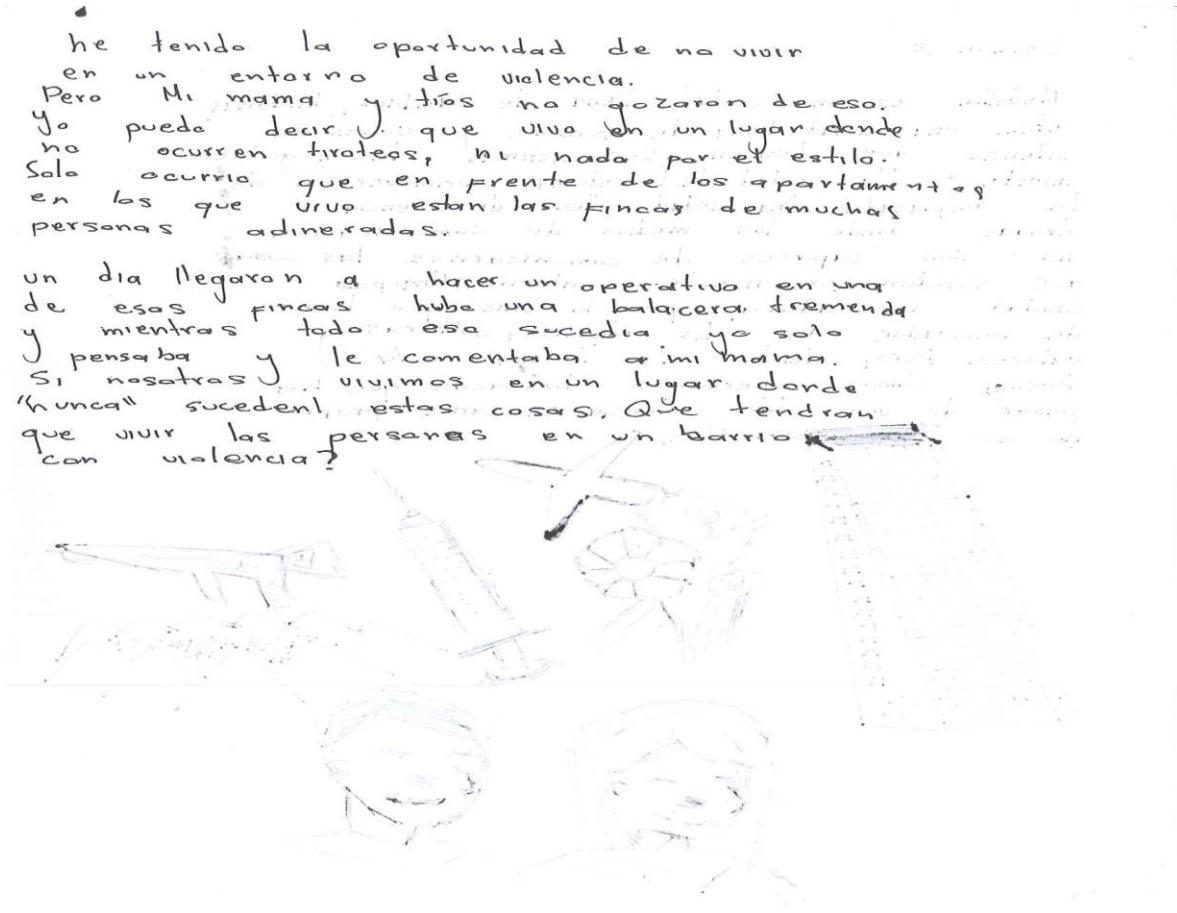 he tenido la oportunidad de no vivir
en un entorno de violencia.
Pero Mi mama y tíos no gozaron de eso.
Yo puedo decir que vivo en un lugar donde
no ocurren tiroteos, ni nada por el estilo.
Solo ocurrio que en frente de los apartamentos
en los que vivo estan las fincas de muchas
personas adineradas.
un dia llegaron a hacer un operativo en una
de esas fincas hubo una balacera tremenda
y mientras todo eso sucedia yo solo
pensaba y le comentaba a mi mama.
Si nosotros vivimos en un lugar donde
"nunca" suceden estas cosas. Que tendran
que vivir las personas en un barrio
con violencia?